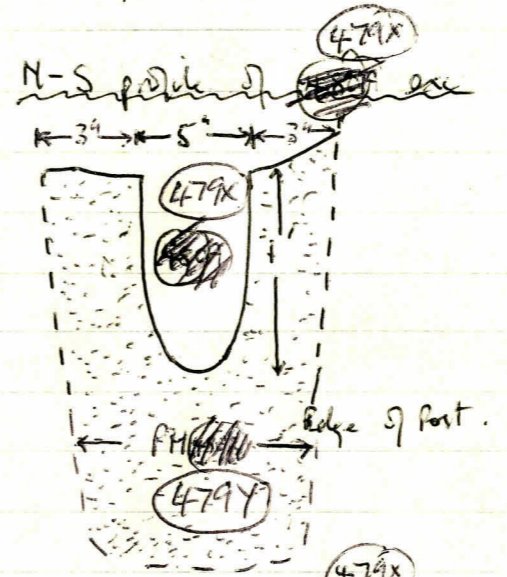 479X
N-S profile of exc
3" 5" 3"
479X
Edge of Post.
PH
479Y
479X